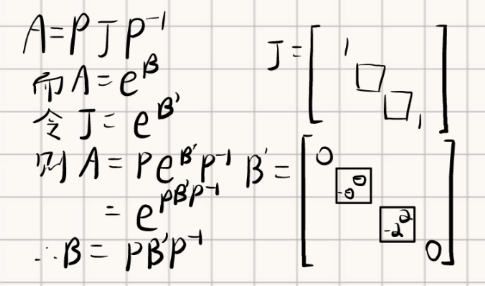 A=PJP⁻¹
而A=e^B
令J=e^B'
则A=Pe^B'P⁻¹
=e^PB'P⁻¹
∴B=PB'P⁻¹
J=[1 □ □ 1]
B'=[0 0]